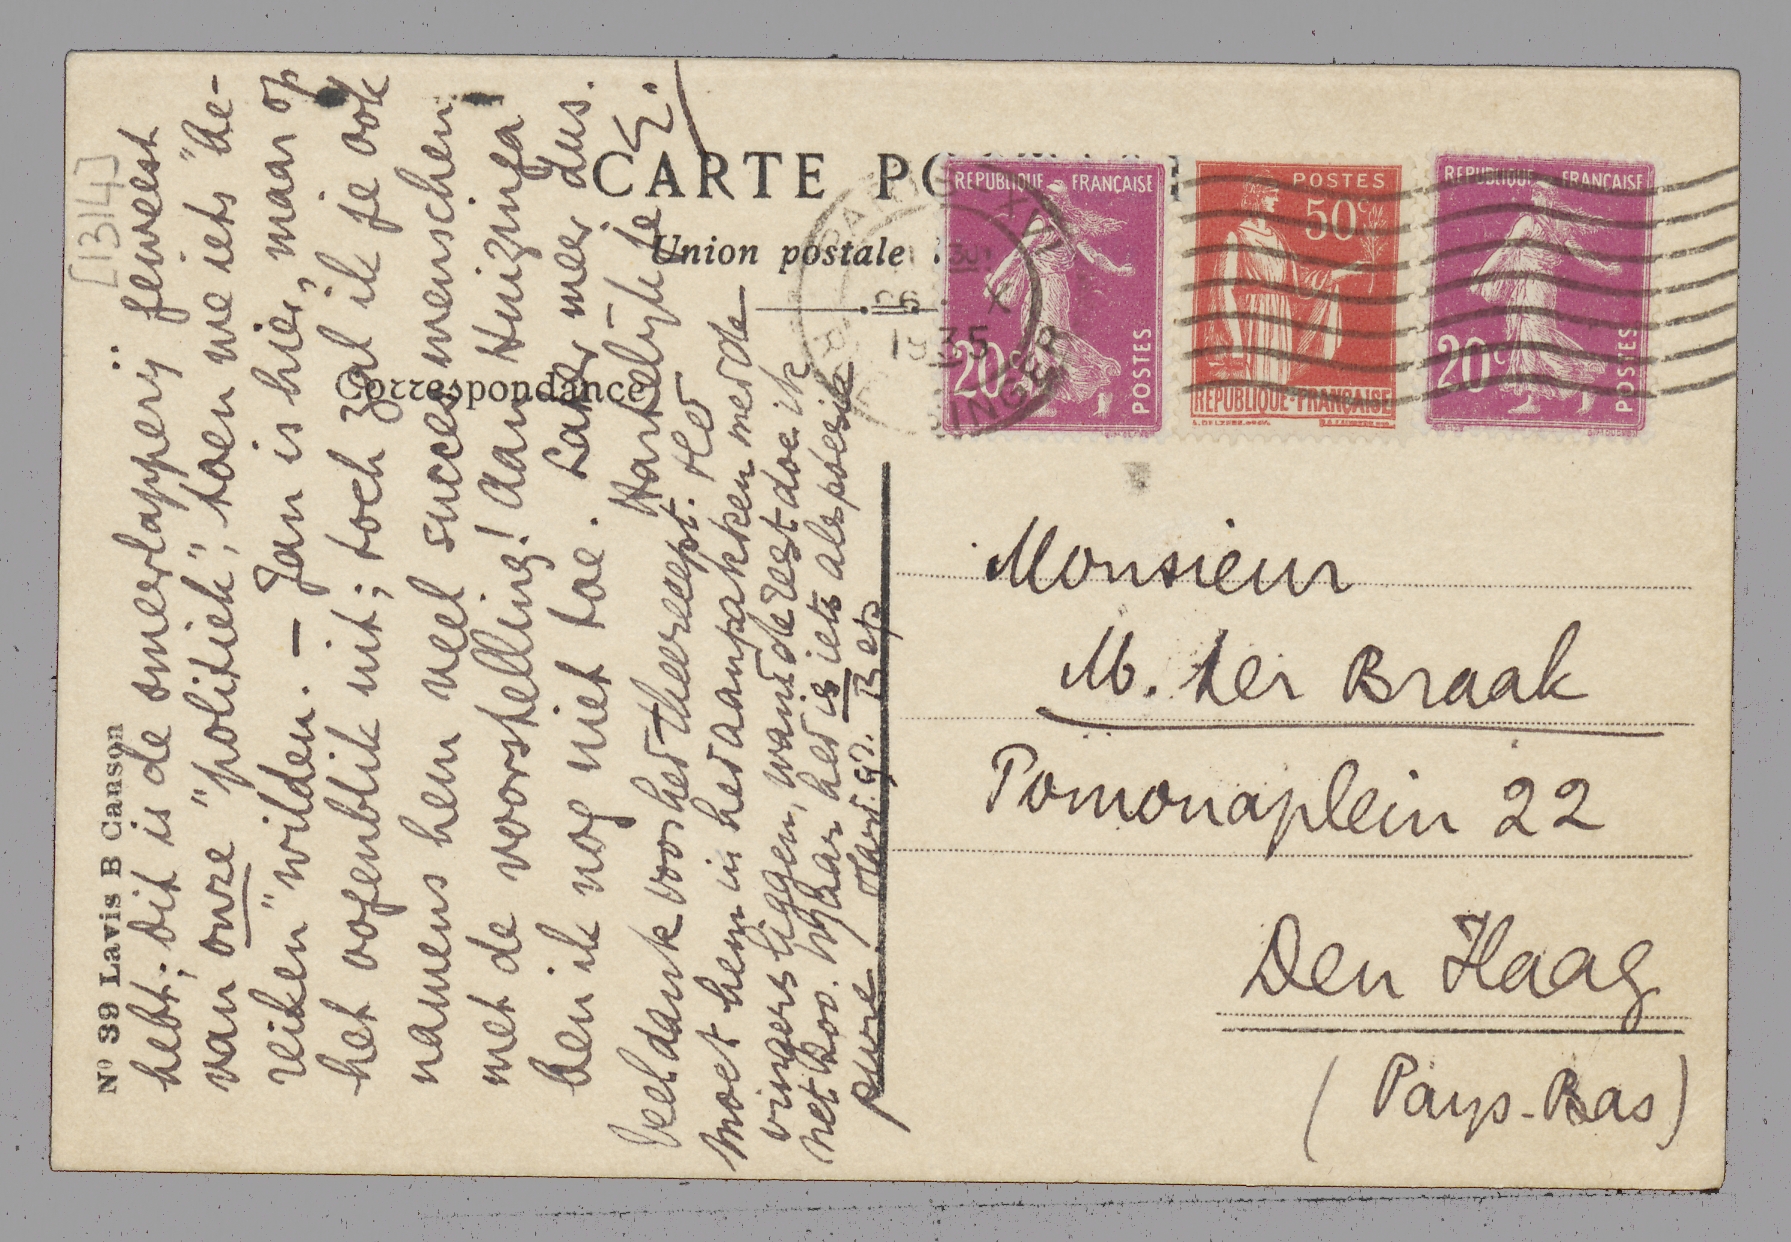 [1314]
Nº 39 Lavis B Canson
hebt; dit is de smeerlapperij geweest
van onze "politiek", toen we iets "be-
reiken" wilden. — Jan is hier, maar op
het oogenblik uit; toch zal ik je ook
namens hem veel succes wenschen
met de voorstelling! Aan Huizinga
ben ik nog niet toe. Later meer dus.
Hartelijks je
E.
Veel dank voor het theerecept. Het
moet hem in het aanpakken met de
vingers liggen, want de rest doe ik
net zoo. Maar het is iets als poésie
pure. Hart. gr. Bep
CARTE POSTALE
Union postale
Correspondance
REPUBLIQUE FRANÇAISE
20c POSTES
POSTES
50c
REPUBLIQUE FRANÇAISE
REPUBLIQUE FRANÇAISE
20c POSTES
PARIS XVI
26 X
1935
SINGER
Monsieur
M. ter Braak
Pomonaplein 22
Den Haag
(Pays-Bas)